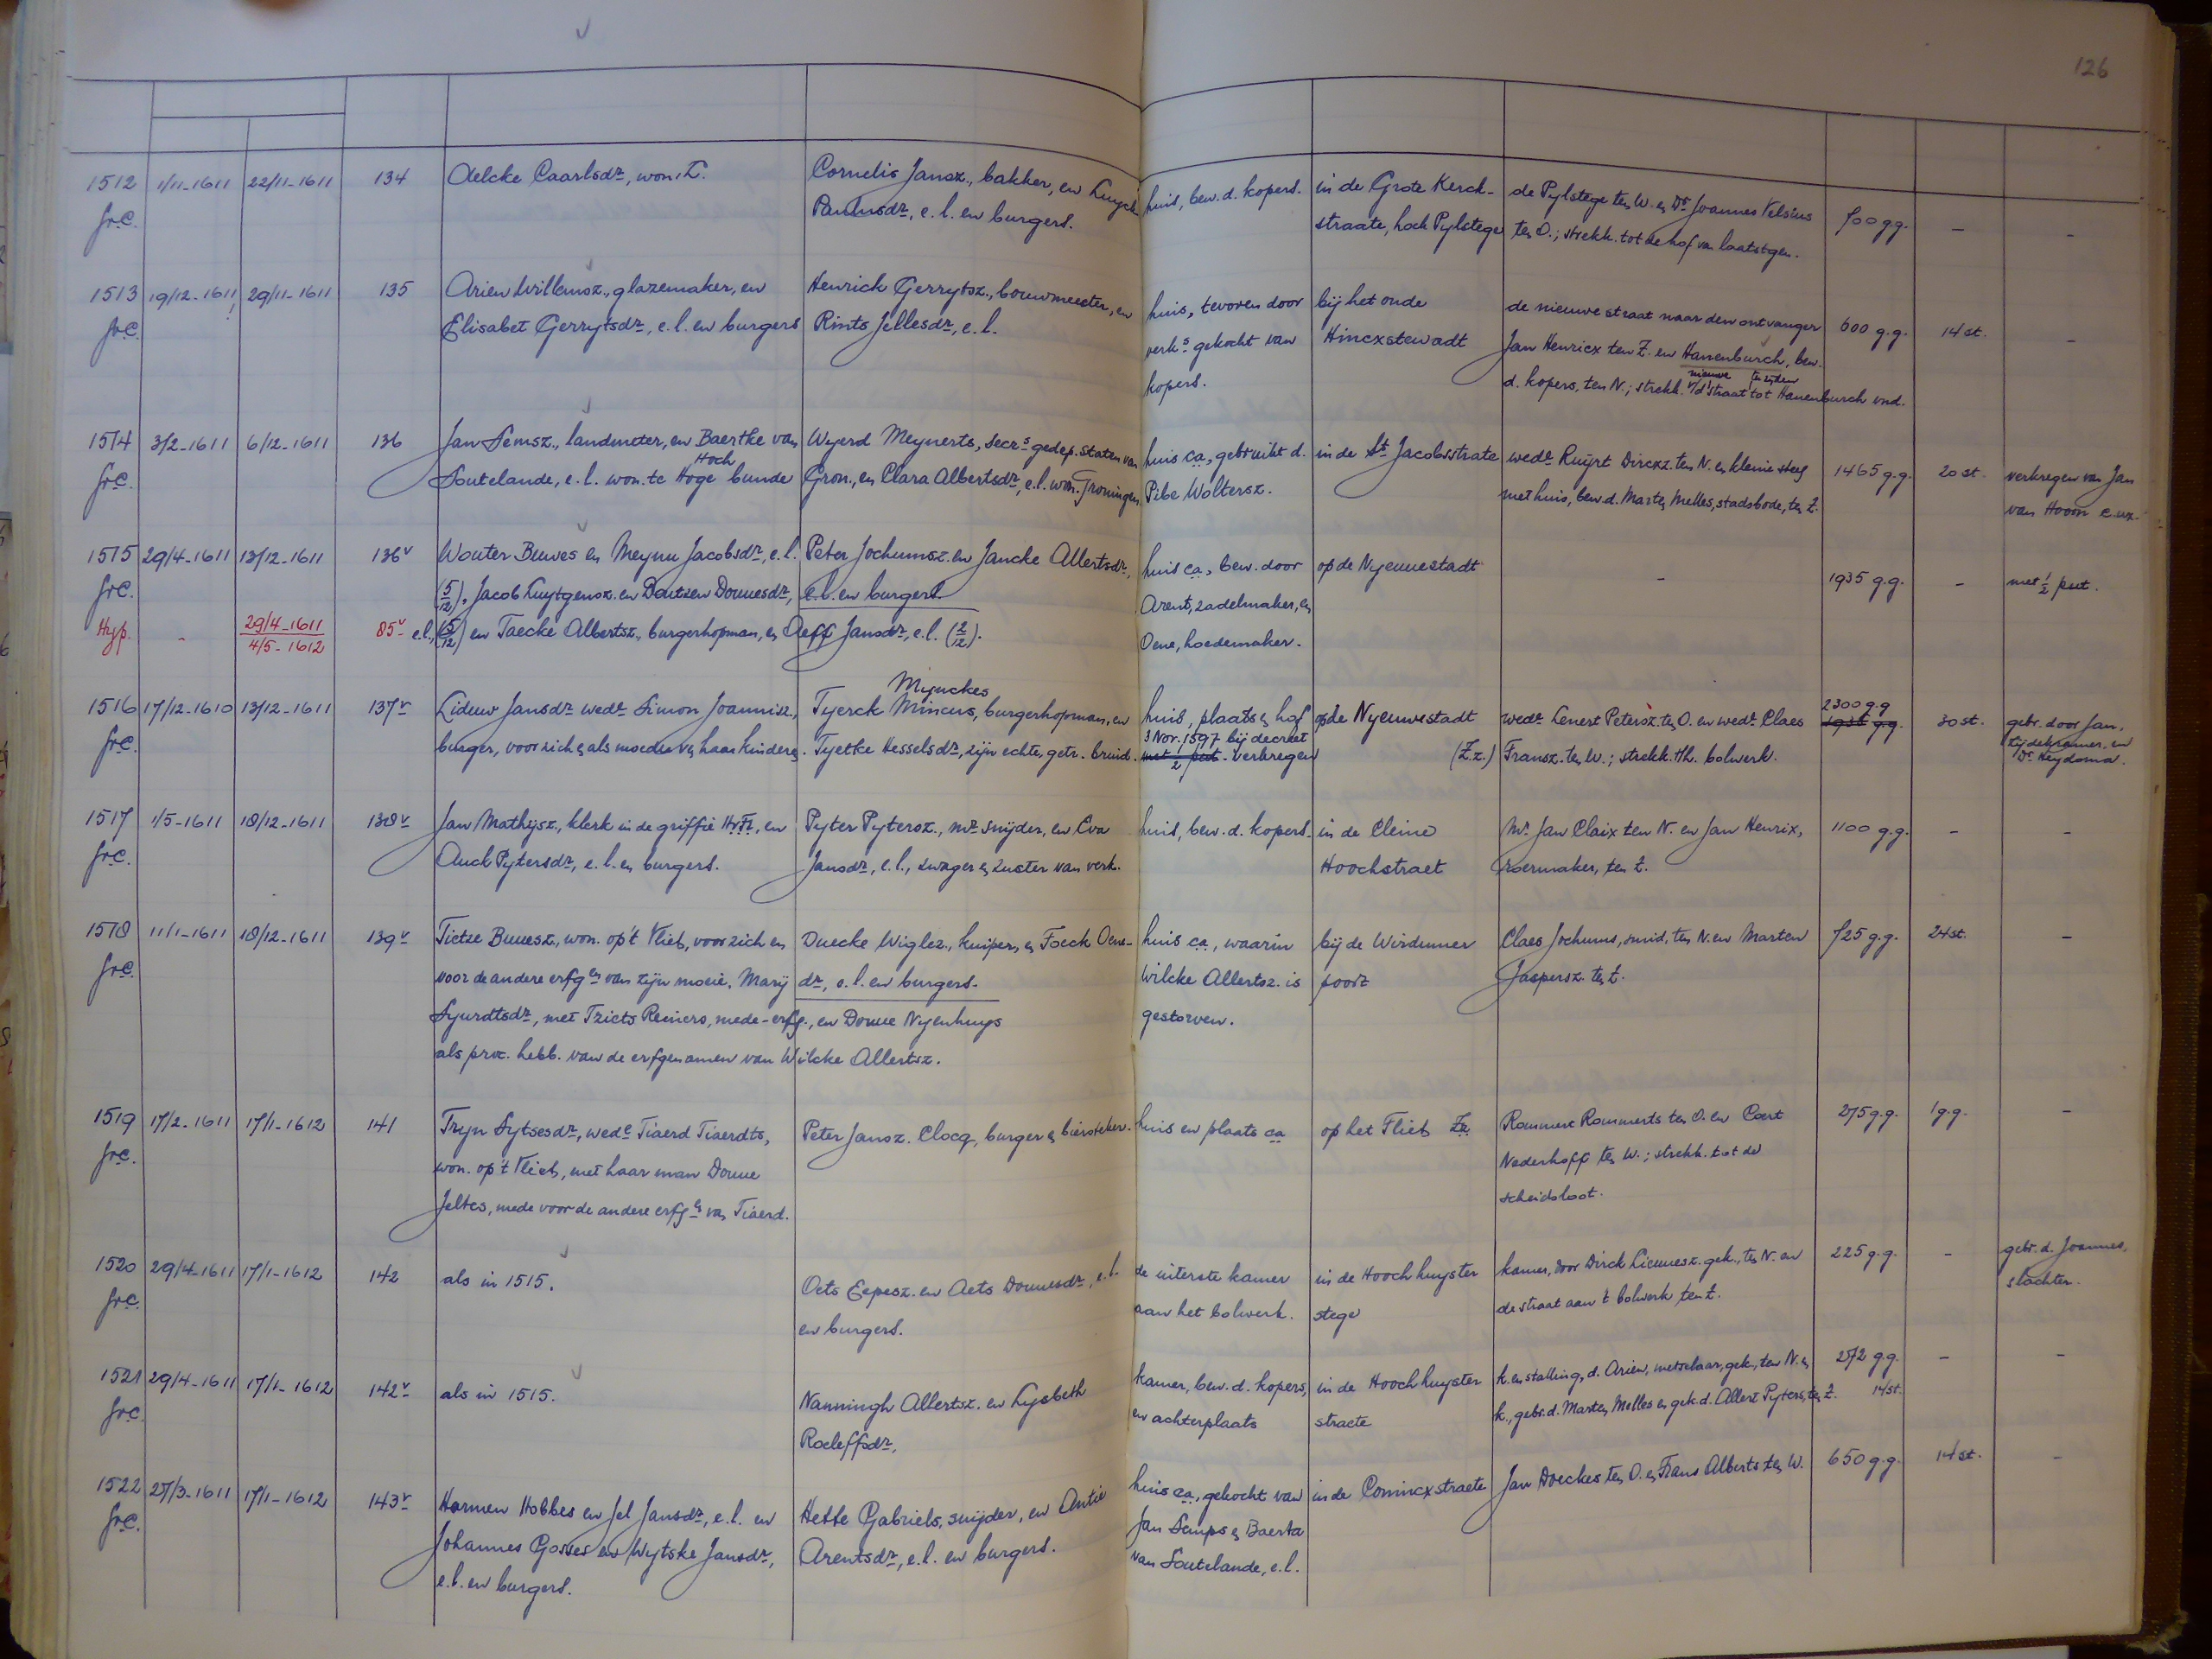 126
1512 1/11-1611 22/11-1611 134 Aelcke Caarlsdr, won. L. Cornelis Jansz., bakker, en Luyck huis, bew. d. kopers. in de Grote Kerck- de Pylstege ten W. en Dr Joannes Velsius 700 g.g. - -
fr.C. Paulusdr, e.l. en burgers. straate, hoek Pylstege ten O.; strekk. tot de hof van laatstgen.
1513 19/12-1611 29/11-1611 135 Arien Willemsz., glazemaker, en Henrick Gerrytsz., bouwmeester, en huis, tevoren door bij het oude de nieuwe straat naar den ontvanger 600 g.g. 14 st. -
! fr.C. Elisabet Gerrytsdr, e.l. en burgers Rints Jellesdr, e.l. verks gekocht van Hincxstewadt Jan Henricx ten Z. en Hanenburch, bew.
kopers. d. kopers, ten N.; strekk. v/d nieuwe straat tot Hanenburch ten zyden vnd.
1514 3/2-1611 6/12-1611 136 Jan Semsz., landmeter, en Baertke van Wyerd Meynerts, secrs gedep. staten van huis ca, gebruikt d. in de St Jacobsstrate wede Ruijrt Dircxz. ten N. en kleine steeg 1465 g.g. 20 st. verkregen van Jan
fr.C. Soutelande, e.l. won. te Hoge Hoch bunde Gron., en Clara Albertsdr, e.l. won. Groningen Pibe Woltersz. met huis, bew. d. Marten Melles, stadsbode, ten Z. van Hoorn c.ux.
1515 29/4-1611 13/12-1611 136v Wouter Buwes en Meynu Jacobsdr, e.l. Peter Jochumsz. en Jancke Allertsdr, huis ca, bew. door op de Nyeuwestadt - 1935 g.g. - met ½ put.
fr.C. (5/12), Jacob Luytgensz. en Doutzen Douuesdr, e.l. en burgers. Arent, zadelmaker, en
Hyp. - 29/4-1611 4/5-1612 85v e.l., (5/12) en Taecke Albertsz., burgerhopman, en Aeff Jansdr, e.l. (2/12). Oene, hoedemaker.
1516 17/12-1610 13/12-1611 137v Lieuw Jansdr wedr Simon Joannisz, Tyerck Mincus, Mynckes burgerhopman, en huis, plaats en hof op de Nyeuwestadt wedr Lenert Petersz. ten O. en wedr Claes 2300 g.g. 1935 g.g. 30 st. gebr. door Jan,
fr.C. burger, voor zich en als moeder v. haar kinderen. Tyetke Hesselsdr, zijn echte, getr. bruid. 3 Nov. 1597 bij decreet met ½ put. verkregen (Z.z.) Fransz. ten W.; strekk. tth. bolwerk. tijdekramer, en Dr Heydoma.
1517 1/5-1611 18/12-1611 138v Jan Mathijsz., klerk in de griffie HvFr, en Pyter Pytersz., mr snijder, en Eva huis, bew. d. kopers. in de Cleine Mr Jan Claix ten N. en Jan Henrix, 1100 g.g. - -
fr.C. Auck Pytersdr, e.l. en burgers. Jansdr, e.l., zwager en zuster van verk. Hoochstraet roermaker, ten Z.
1518 11/1-1611 18/12-1611 139v Tietze Buuesz., won. op 't Vliet, voor zich en Duecke Wiglez., kuiper, en Foeck Oene- huis ca, waarin bij de Wirdumer Claes Jochums, smid, ten N. en Marten 725 g.g. 24 st. -
fr.C. voor de andere erfgen van zijn moeie, Marij dr, e.l. en burgers. Wilcke Allertsz. is poort Jaspersz. ten Z.
Syurdtsdr, met Tziets Reiners, mede-erfg., en Douue Nyenhuys gestorven.
als proc. hebb. van de erfgenamen van Wilcke Allertsz.
1519 17/2-1611 17/1-1612 141 Tryn Sytsesdr, wede Tiaerd Tiaerdts, Peter Jansz. Clocq, burger en biersteker. huis en plaats ca op het Fliet Zz Rommert Rommerts ten O. en Coert 275 g.g. 1 g.g. -
fr.C. won. op 't Vliet, met haar man Douue Nederhoff ten W.; strekk. tot de
Jeltes, mede voor de andere erfgen van Tiaerd. scheidsloot.
1520 29/4-1611 17/1-1612 142 als in 1515. Oets Eepesz. en Aets Douuesdr, e.l. de uiterste kamer in de Hooch huyster kamer, door Dirck Lieuuesz. gek., ten N. en 225 g.g. - gebr. d. Joannes,
fr.C. en burgers. aan het bolwerk. stege de straat aan 't bolwerk ten Z. slachter.
1521 29/4-1611 17/1-1612 142v als in 1515. Nanningh Allertsz. en Lysbeth kamer, bew. d. kopers, in de Hooch huyster k. en stalling, d. Arien, metselaar, gek., ten N. en 272 g.g. - -
fr.C. Roeleffsdr, en achterplaats straete k., gebr. d. Marten Melles en gek. d. Allert Pyters, ten Z. 14 st.
1522 27/3-1611 17/1-1612 143v Harmen Hobbes en Jel Jansdr, e.l. en Hette Gabriels, snijder, en Antie huis ca, gekocht van in de Conincxstraete Jan Doeckes ten O. en Frans Alberts ten W. 650 g.g. 14 st. -
fr.C. Johannes Gosses en Wytske Jansdr, Arentsdr, e.l. en burgers. Jan Semps en Baerta
e.l. en burgers. van Soutelande, e.l.